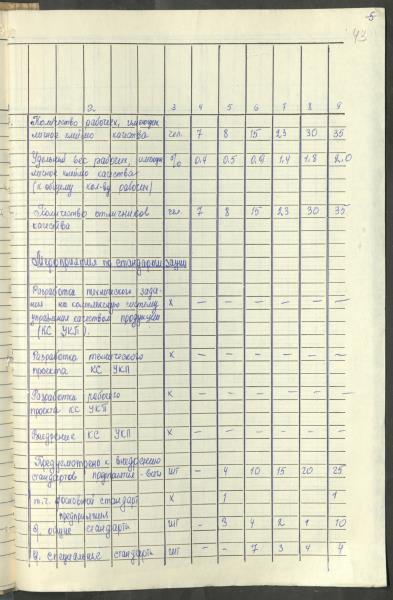 5
43
2 3 4 5 6 7 8 9
Количество рабочих, имеющих
личное клеймо качества чел. 7 8 15 23 30 35
Удельный вес рабочих, имеющих % 0,4 0,5 0,9 1,4 1,8 2,0
личное клеймо качества
(к общему кол-ву рабочих)
Количество отличников чел. 7 8 15 23 30 35
качества
Мероприятия по стандартизации
Разработка технического зада-
ния на комплексную систему х — — — — — —
управления качеством продукции
(КС УКП).
Разработка технического х — — — — — —
проекта КС УКП
Разработка рабочего х — — — — — —
проекта КС УКП
Внедрение КС УКП х — — — — — —
Предусмотрено к внедрению
стандартов предприятия - всего шт — 4 10 15 20 25
т.ч. основной стандарт х 1 1
предприятия
общие стандарты шт — 3 4 2 1 10
специальные стандарты шт — — 7 3 4 4